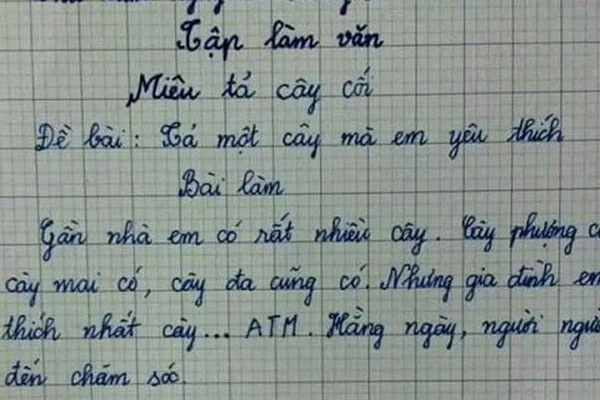 Tập làm văn
Miêu tả cây cối
Đề bài: Tả một cây mà em yêu thích
Bài làm
Gần nhà em có rất nhiều cây. Cây phượng c
cây mai có, cây đa cũng có. Nhưng gia đình em
thích nhất cây... ATM. Hằng ngày, người ngư
đến chăm sóc.